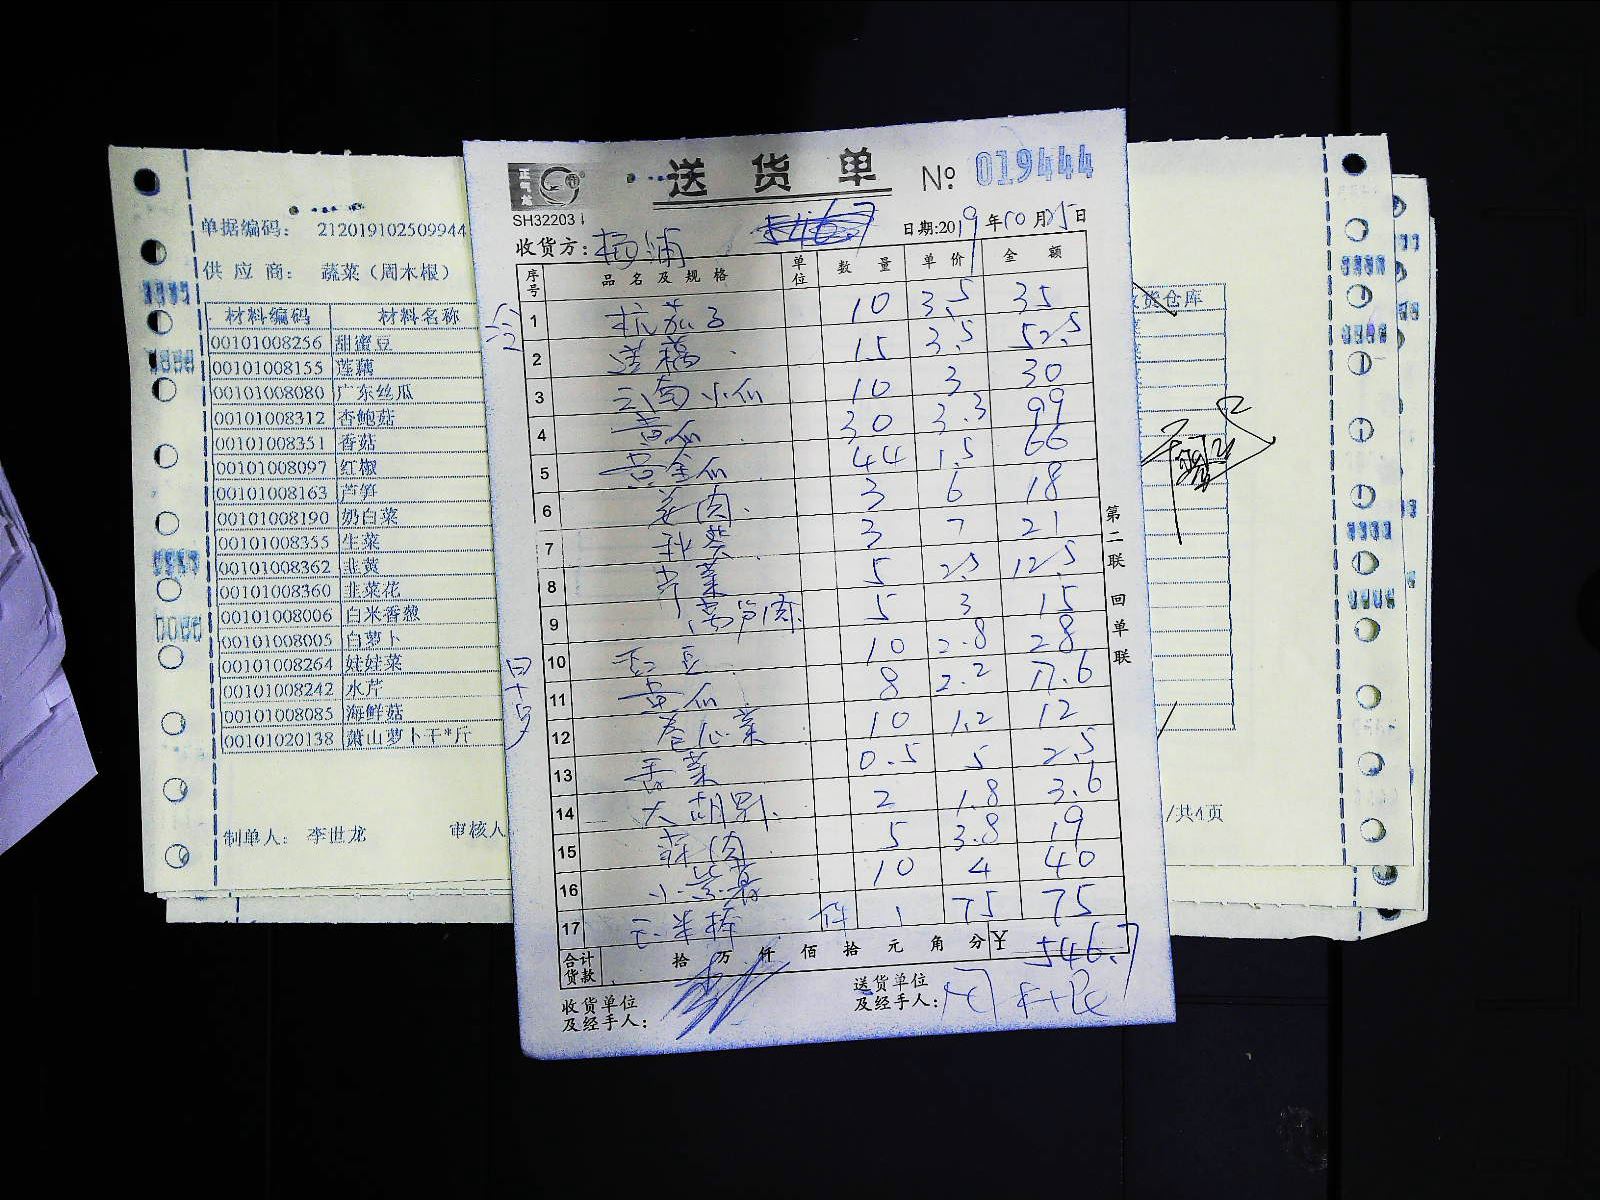 单据编码： 212019102509944
供 应 商： 蔬菜（周木根）
材料编码 材料名称
00101008256 甜蜜豆
00101008155 莲藕
00101008080 广东丝瓜
00101008312 杏鲍菇
00101008351 香菇
00101008097 红椒
00101008163 芦笋
00101008190 奶白菜
00101008355 生菜
00101008362 韭黄
00101008360 韭菜花
00101008006 白米香葱
00101008005 白萝卜
00101008264 娃娃菜
00101008242 水芹
00101008085 海鲜菇
00101020138 萧山萝卜干*斤
制单人： 李世龙 审核人
正气龙
SH32203
送货单 №: 019444
546.7
收货方: 杨浦 日期:2019年10月25日
序号 品名及规格 单位 数量 单价 金额
1 杭茄子 10 3.5 35
2 莲藕 15 3.5 52.5
3 云南小瓜 10 3 30
4 黄瓜 30 3.3 99
5 黄金瓜 44 1.5 66
6 姜肉 3 6 18
7 秋葵 3 7 21
8 芹菜 5 2.5 12.5
9 莴笋肉 5 3 15
10 豆 10 2.8 28
11 瓜 8 2.2 17.6
12 卷心菜 10 1.2 12
13 香菜 0.5 5 2.5
14 大胡 2 1.8 3.6
15 蒜肉 5 3.8 19
16 小 10 4 40
17 玉米棒 件 1 75 75
合计货款 拾 万 仟 佰 拾 元 角 分 ¥ 546.7
收货单位及经手人:
送货单位及经手人: 周
第二联 回单联
货仓库
/共4页